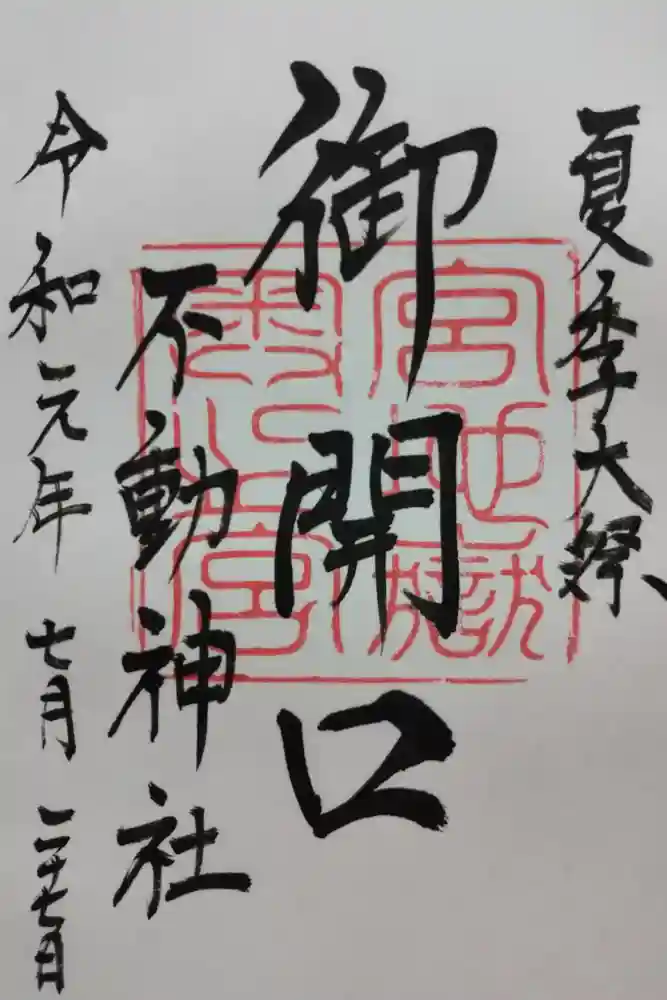 夏季大祭
御開口
宮地嶽
不動神社
令和元年 七月 二十七日